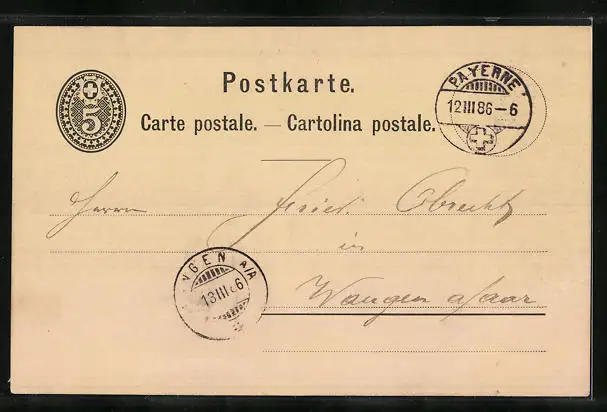 5
Postkarte.
Carte postale. — Cartolina postale.
PAYERNE
12 III 86 – 6
Herrn Fried. Obrecht
in
Wangen a/aar
NGEN A/A
13 III 86